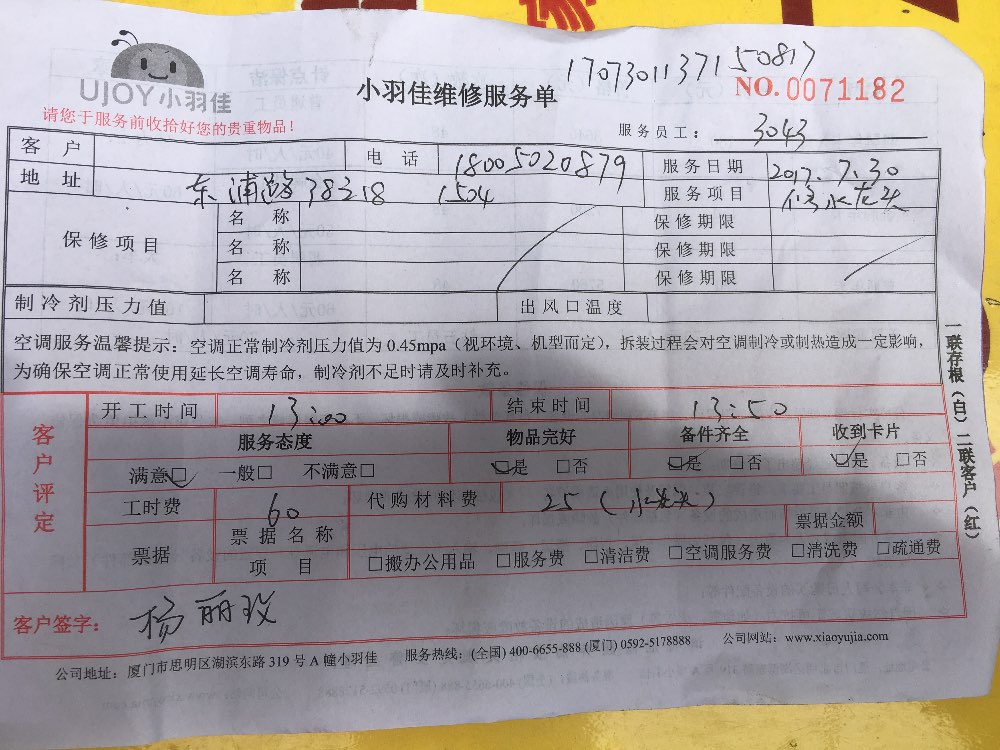 1707301137150817
UJOY小羽佳
小羽佳维修服务单
NO.0071182
请您于服务前收拾好您的贵重物品！
服务员工： 3043
客 户 电 话 18005020879 服务日期 2017.7.30
地 址 东浦路38号218 1504 服务项目 修水龙头
保修项目 名 称 保修期限
名 称 保修期限
名 称 保修期限
制冷剂压力值 出风口温度
空调服务温馨提示：空调正常制冷剂压力值为 0.45mpa（视环境、机型而定），拆装过程会对空调制冷或制热造成一定影响，
为确保空调正常使用延长空调寿命，制冷剂不足时请及时补充。
客户评定
开工时间 13:00 结束时间 13:50
服务态度 物品完好 备件齐全 收到卡片
满意☑ 一般□ 不满意□ ☑是 □否 ☑是 □否 ☑是 □否
工时费 60 代购材料费 25（水龙头）
票据 票据名称 票据金额
项 目 □搬办公用品 □服务费 □清洁费 □空调服务费 □清洗费 □疏通费
客户签字： 杨丽玫
公司地址：厦门市思明区湖滨东路 319 号 A 幢小羽佳 服务热线：(全国) 400-6655-888 (厦门) 0592-5178888 公司网站：www.xiaoyujia.com
一联存根（白）二联客户（红）